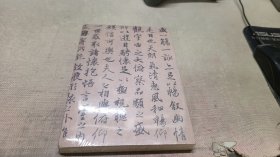 觴一詠亦足以暢叙幽情
是日也天朗氣清惠風和暢仰
觀宇宙之大俯察品類之盛
所以遊目騁懷足以極視聽之
娛信可樂也夫人之相與俯仰
一世或取諸懷抱悟言一室之內